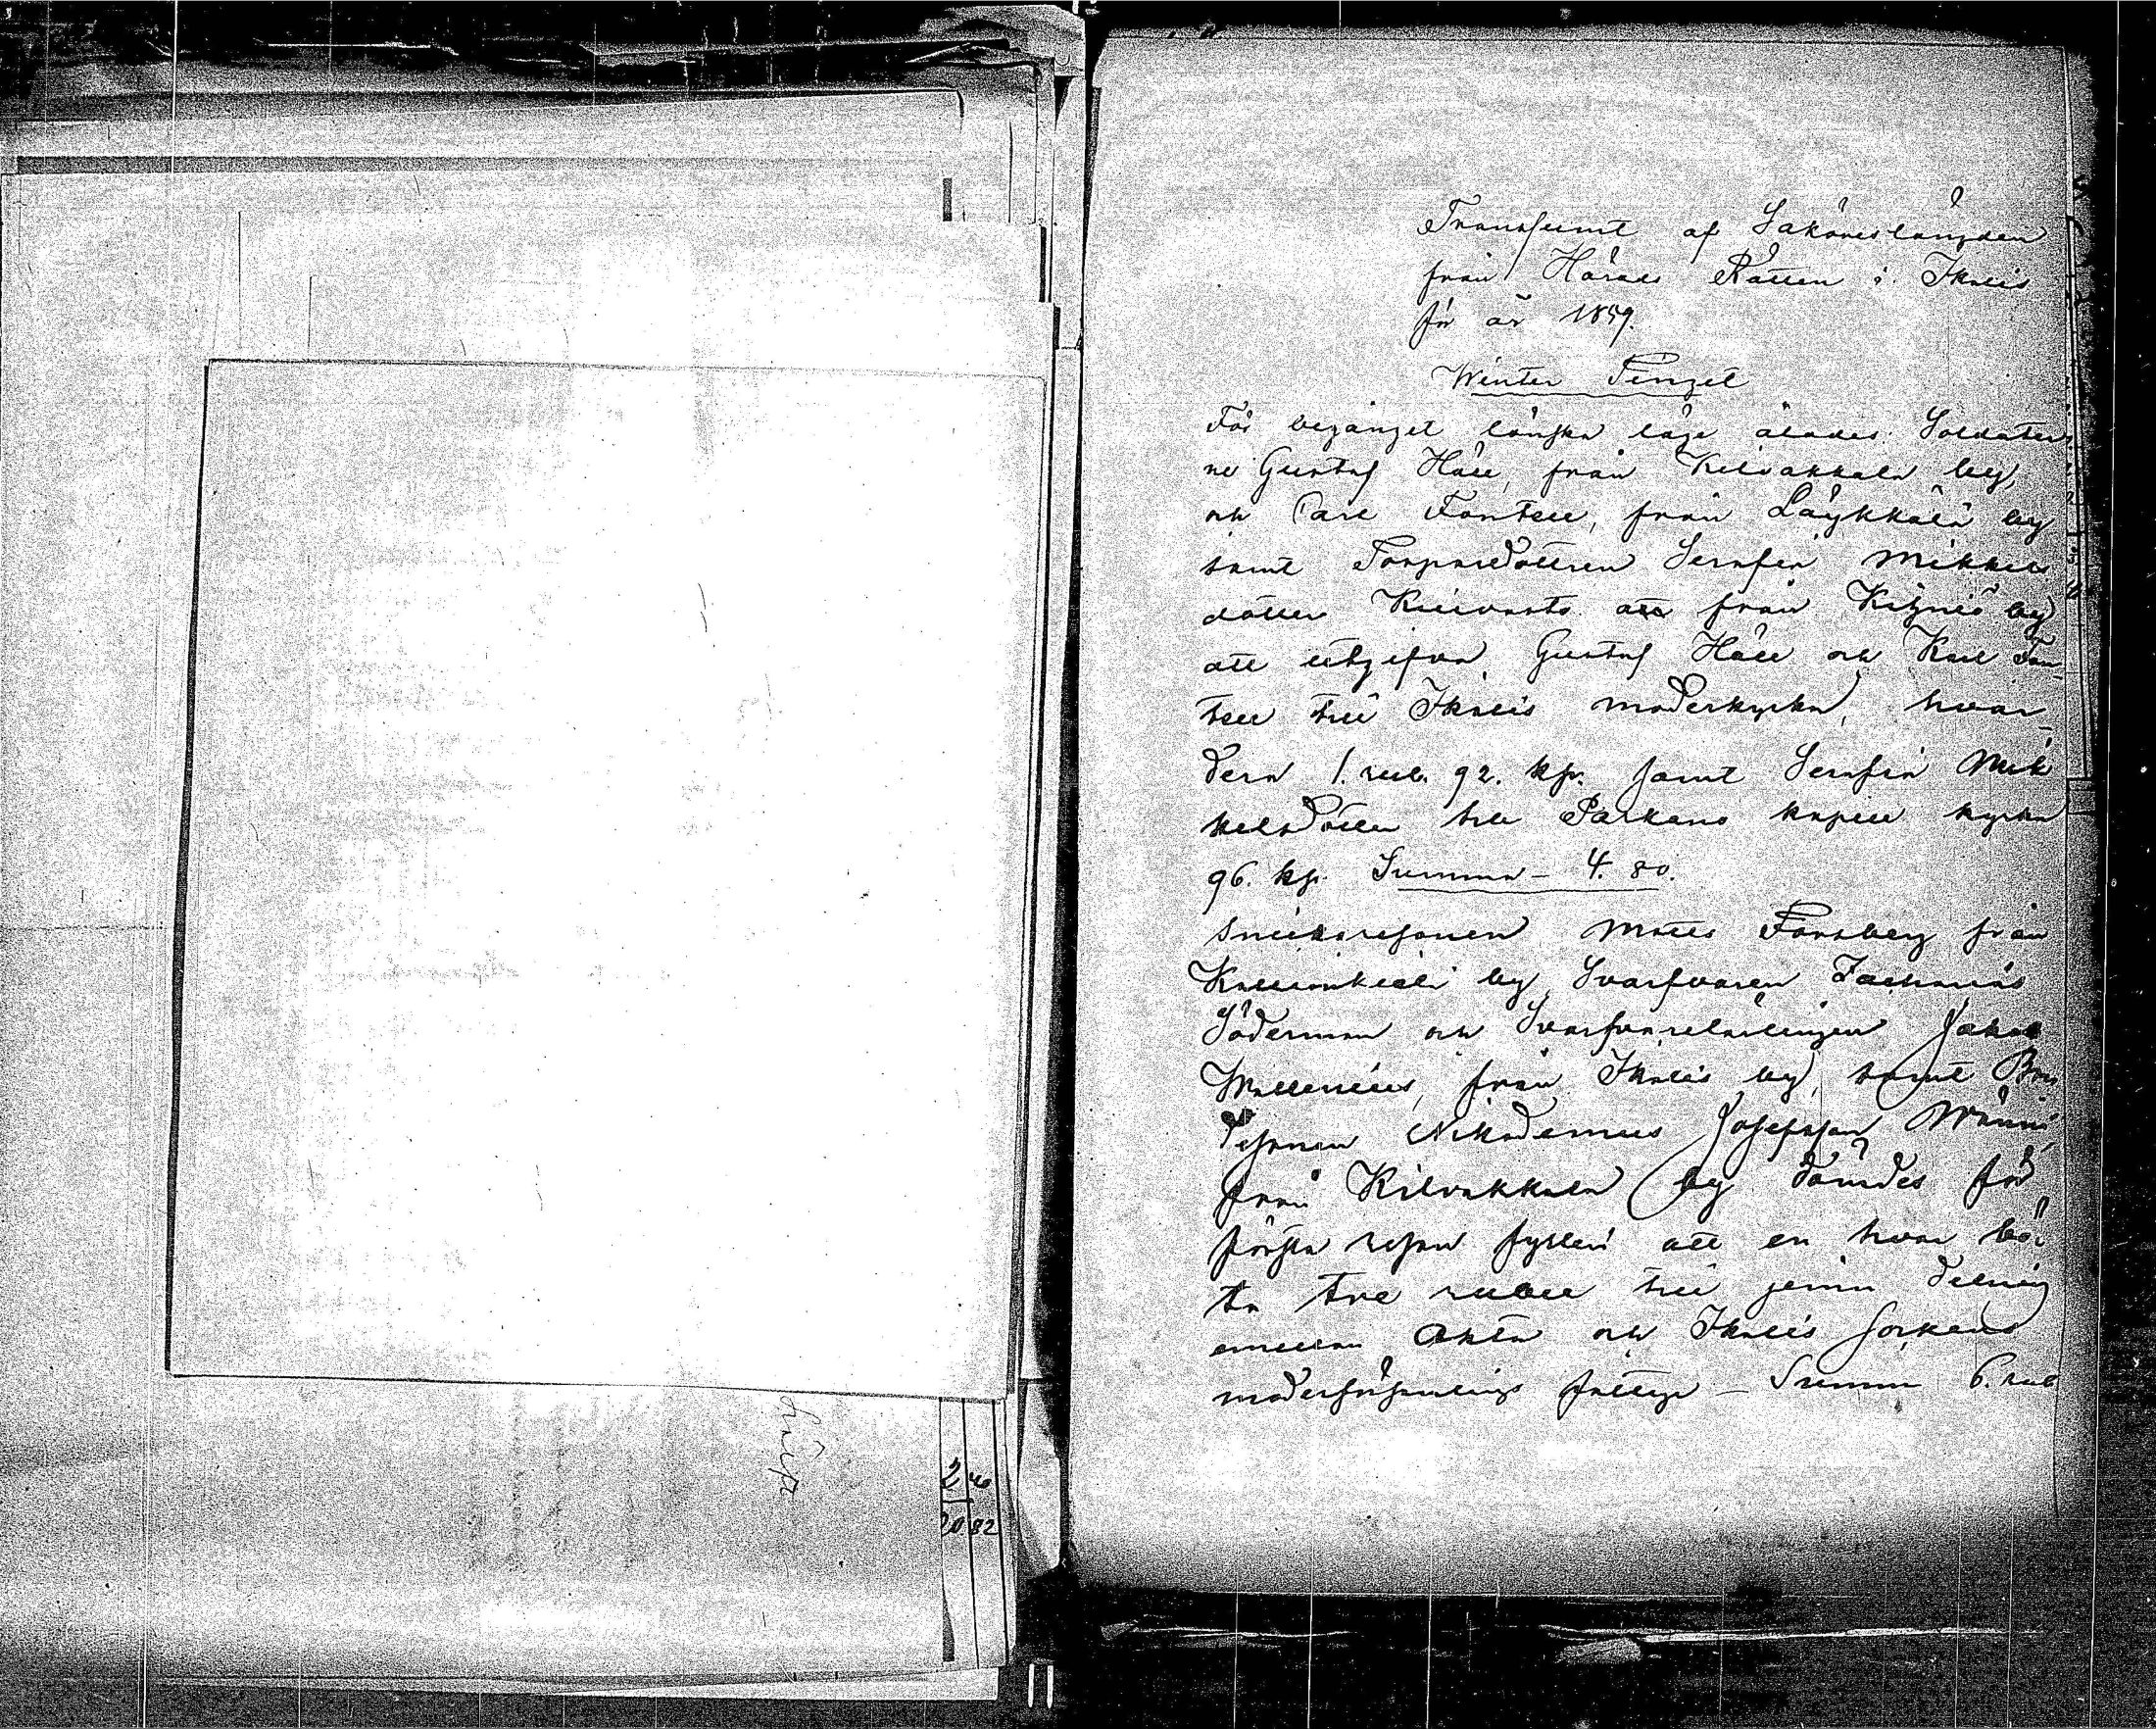 Transsumt af Saköreslängden
från Härads Rätten i Ikalis
för år 1859.
Winter Tinget
För begånget lönska läge ålades Soldater
ne Gustaf Häll, från Kilvakkala by,
och Carl Fontell, från Läykkälä by
samt Torparedottren Serafia Mikkels
dotter från Kihniö by
att utgifva, Gustaf Häll och Karl Fon
tell till Ikalis moderkyrka, hvar
dera 1. rub. 92. kp. samt Serafia Mik
kelsdotter till Parkano kapell kyrka
96. kp. Summa - 4. 80.
Snickaresonen Matts Forsberg från
by, Svarfvaren Zachrias
Söderman och Svarfvarelärlingen Jakob
Wallenius, från Ikalis by, samt Bon
desonen Nikodemus Josefsson Wänni,
från Kilvakkala by dömdes för
första resan fylleri att en hvar bö
ta tre rubel till jemn delning
emellan och Ikalis Sockens
moderförsamlings fattige - Summa 6. rub
2 40
20 82